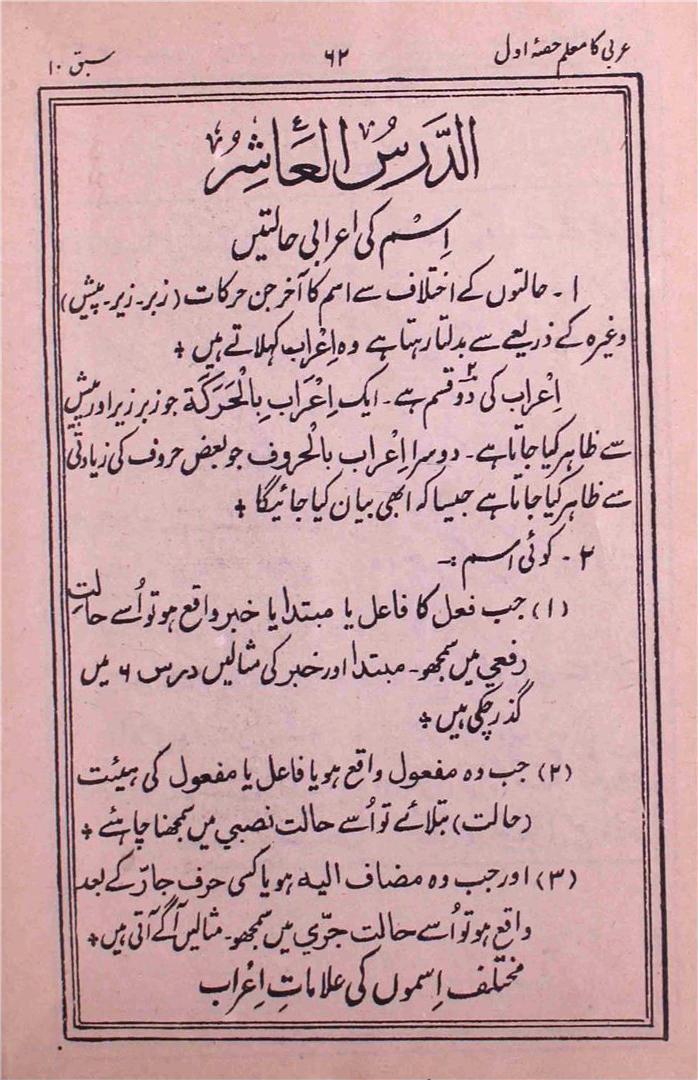 عربی کا معلم حصۂ اول ۶۲ سبق ۱۰
الدَّرسُ العَاشِرُ
اِسْم کی اعرابی حالتیں
۱۔ حالتوں کے اختلاف سے اسم کا آخر جن حرکات (زبر۔ زیر۔ پیش)
وغیرہ کے ذریعے سے بدلتا رہتا ہے وہ اِعْراب کہلاتے ہیں +
اِعْراب کی دو۲ قسم ہے۔ ایک اِعْرَاب بِالْحَرَكَة جو زبر زیر اور پیش
سے ظاہر کیا جاتا ہے۔ دوسرا اِعْراب بالْحروف جو بعض حروف کی زیادتی
سے ظاہر کیا جاتا ہے جیسا کہ ابھی بیان کیا جائیگا +
۲۔ کوئی اسم :-
(۱) جب فعل کا فاعل یا مبتدا یا خبر واقع ہو تو اُسے حالتِ
رفعي میں سمجھو۔ مبتدا اور خبر کی مثالیں درس ۶ میں
گذر چکی ہیں +
(۲) جب وہ مفعول واقع ہو یا فاعل یا مفعول کی هیئت
(حالت) بتلائے تو اُسے حالت نصبي میں سمجھنا چاہئے +
(۳) اور جب وہ مضاف الیہ ہو یا کسی حرف جارّ کے بعد
واقع ہو تو اُسے حالت جرّي میں سمجھو۔ مثالیں آگے آتی ہیں +
مختلف اِسموں کی علاماتِ اِعْراب